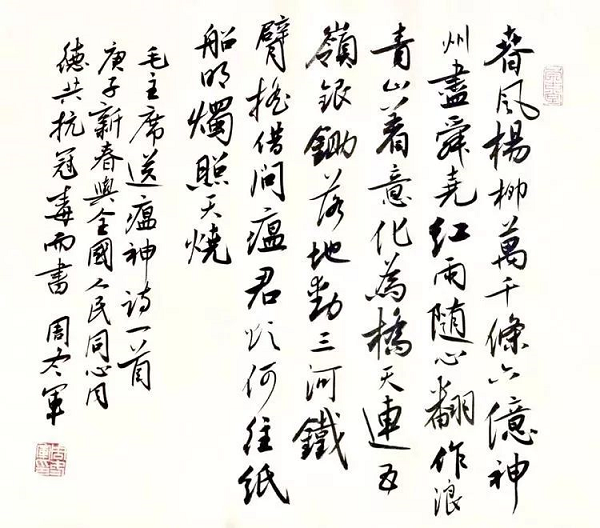 春风楊柳萬千條六億神
州盡舜堯红雨随心翻作浪
青山着意化為橋天連五
嶺銀鋤落地動三河鐵
臂搖借问瘟君欲何往纸
船明燭照天燒
毛主席送瘟神诗一首
庚子新春與全國人民同心同
德共抗冠毒而書 周冬軍